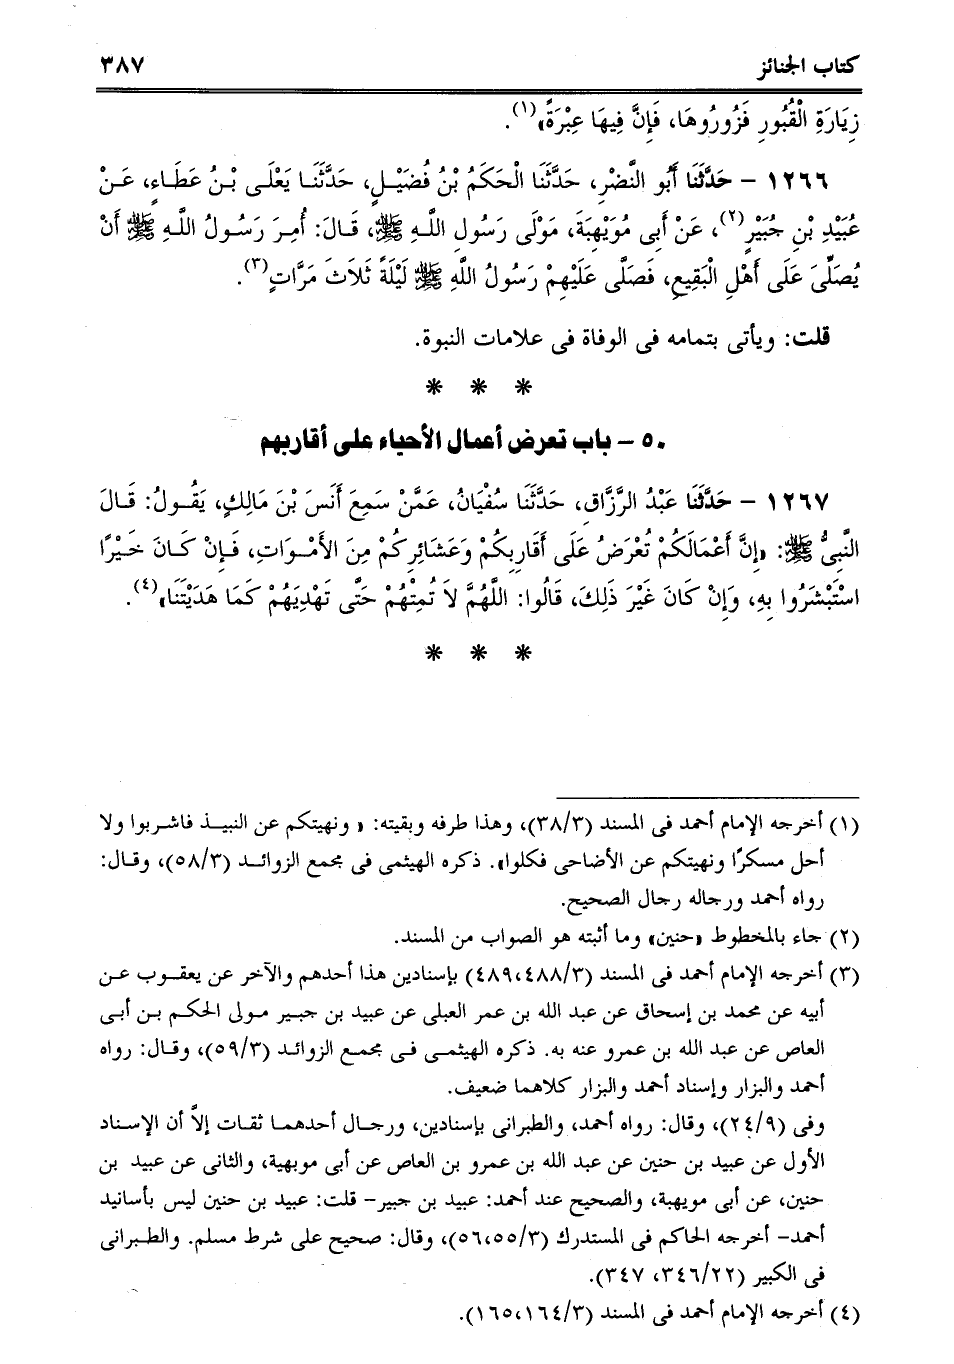 كتاب الجنائز ٣٨٧
زِيَارَةِ الْقُبُورِ فَزُورُوهَا، فَإِنَّ فِيهَا عِبْرَةً»(١).
١٢٦٦ – حَدَّثَنَا أَبُو النَّضْرِ، حَدَّثَنَا الْحَكَمُ بْنُ فُضَيْلٍ، حَدَّثَنَا يَعْلَى بْنُ عَطَاءٍ، عَنْ
عُبَيْدِ بْنِ جُبَيْرٍ(٢)، عَنْ أَبِى مُوَيْهِبَةَ، مَوْلَى رَسُولِ اللَّهِ ﷺ، قَالَ: أُمِرَ رَسُولُ اللَّهِ ﷺ أَنْ
يُصَلِّىَ عَلَى أَهْلِ الْبَقِيعِ، فَصَلَّى عَلَيْهِمْ رَسُولُ اللَّهِ ﷺ لَيْلَةً ثَلاَثَ مَرَّاتٍ(٣).
قلت: ويأتى بتمامه فى الوفاة فى علامات النبوة.
* * *
٥٠ – باب تعرض أعمال الأحياء على أقاربهم
١٢٦٧ – حَدَّثَنَا عَبْدُ الرَّزَّاقِ، حَدَّثَنَا سُفْيَانُ، عَمَّنْ سَمِعَ أَنَسَ بْنَ مَالِكٍ، يَقُولُ: قَالَ
النَّبِىُّ ﷺ: «إِنَّ أَعْمَالَكُمْ تُعْرَضُ عَلَى أَقَارِبِكُمْ وَعَشَائِرِكُمْ مِنَ الأَمْوَاتِ، فَإِنْ كَانَ خَيْرًا
اسْتَبْشَرُوا بِهِ، وَإِنْ كَانَ غَيْرَ ذَلِكَ، قَالُوا: اللَّهُمَّ لاَ تُمِتْهُمْ حَتَّى تَهْدِيَهُمْ كَمَا هَدَيْتَنَا»(٤).
* * *
(١) أخرجه الإمام أحمد فى المسند (٣٨/٣)، وهذا طرفه وبقيته: « ونهيتكم عن النبيذ فاشربوا ولا
أحل مسكرًا ونهيتكم عن الأضاحى فكلوا». ذكره الهيثمى فى مجمع الزوائد (٥٨/٣)، وقال:
رواه أحمد ورجاله رجال الصحيح.
(٢) جاء بالمخطوط «حنين» وما أثبته هو الصواب من المسند.
(٣) أخرجه الإمام أحمد فى المسند (٤٨٨/٣، ٤٨٩) بإسنادين هذا أحدهم والآخر عن يعقوب عن
أبيه عن محمد بن إسحاق عن عبد الله بن عمر العبلى عن عبيد بن جبير مولى الحكم بن أبى
العاص عن عبد الله بن عمرو عنه به. ذكره الهيثمى فى مجمع الزوائد (٥٩/٣)، وقال: رواه
أحمد والبزار وإسناد أحمد والبزار كلاهما ضعيف.
وفى (٢٤/٩)، وقال: رواه أحمد، والطبرانى بإسنادين، ورجال أحدهما ثقات إلاَّ أن الإسناد
الأول عن عبيد بن حنين عن عبد الله بن عمرو بن العاص عن أبى موبهية، والثانى عن عبيد بن
حنين، عن أبى مويهبة، والصحيح عند أحمد: عبيد بن جبير– قلت: عبيد بن حنين ليس بأسانيد
أحمد– أخرجه الحاكم فى المستدرك (٥٥/٣، ٥٦)، وقال: صحيح على شرط مسلم. والطبرانى
فى الكبير (٣٤٦/٢٢، ٣٤٧).
(٤) أخرجه الإمام أحمد فى المسند (١٦٤/٣، ١٦٥).